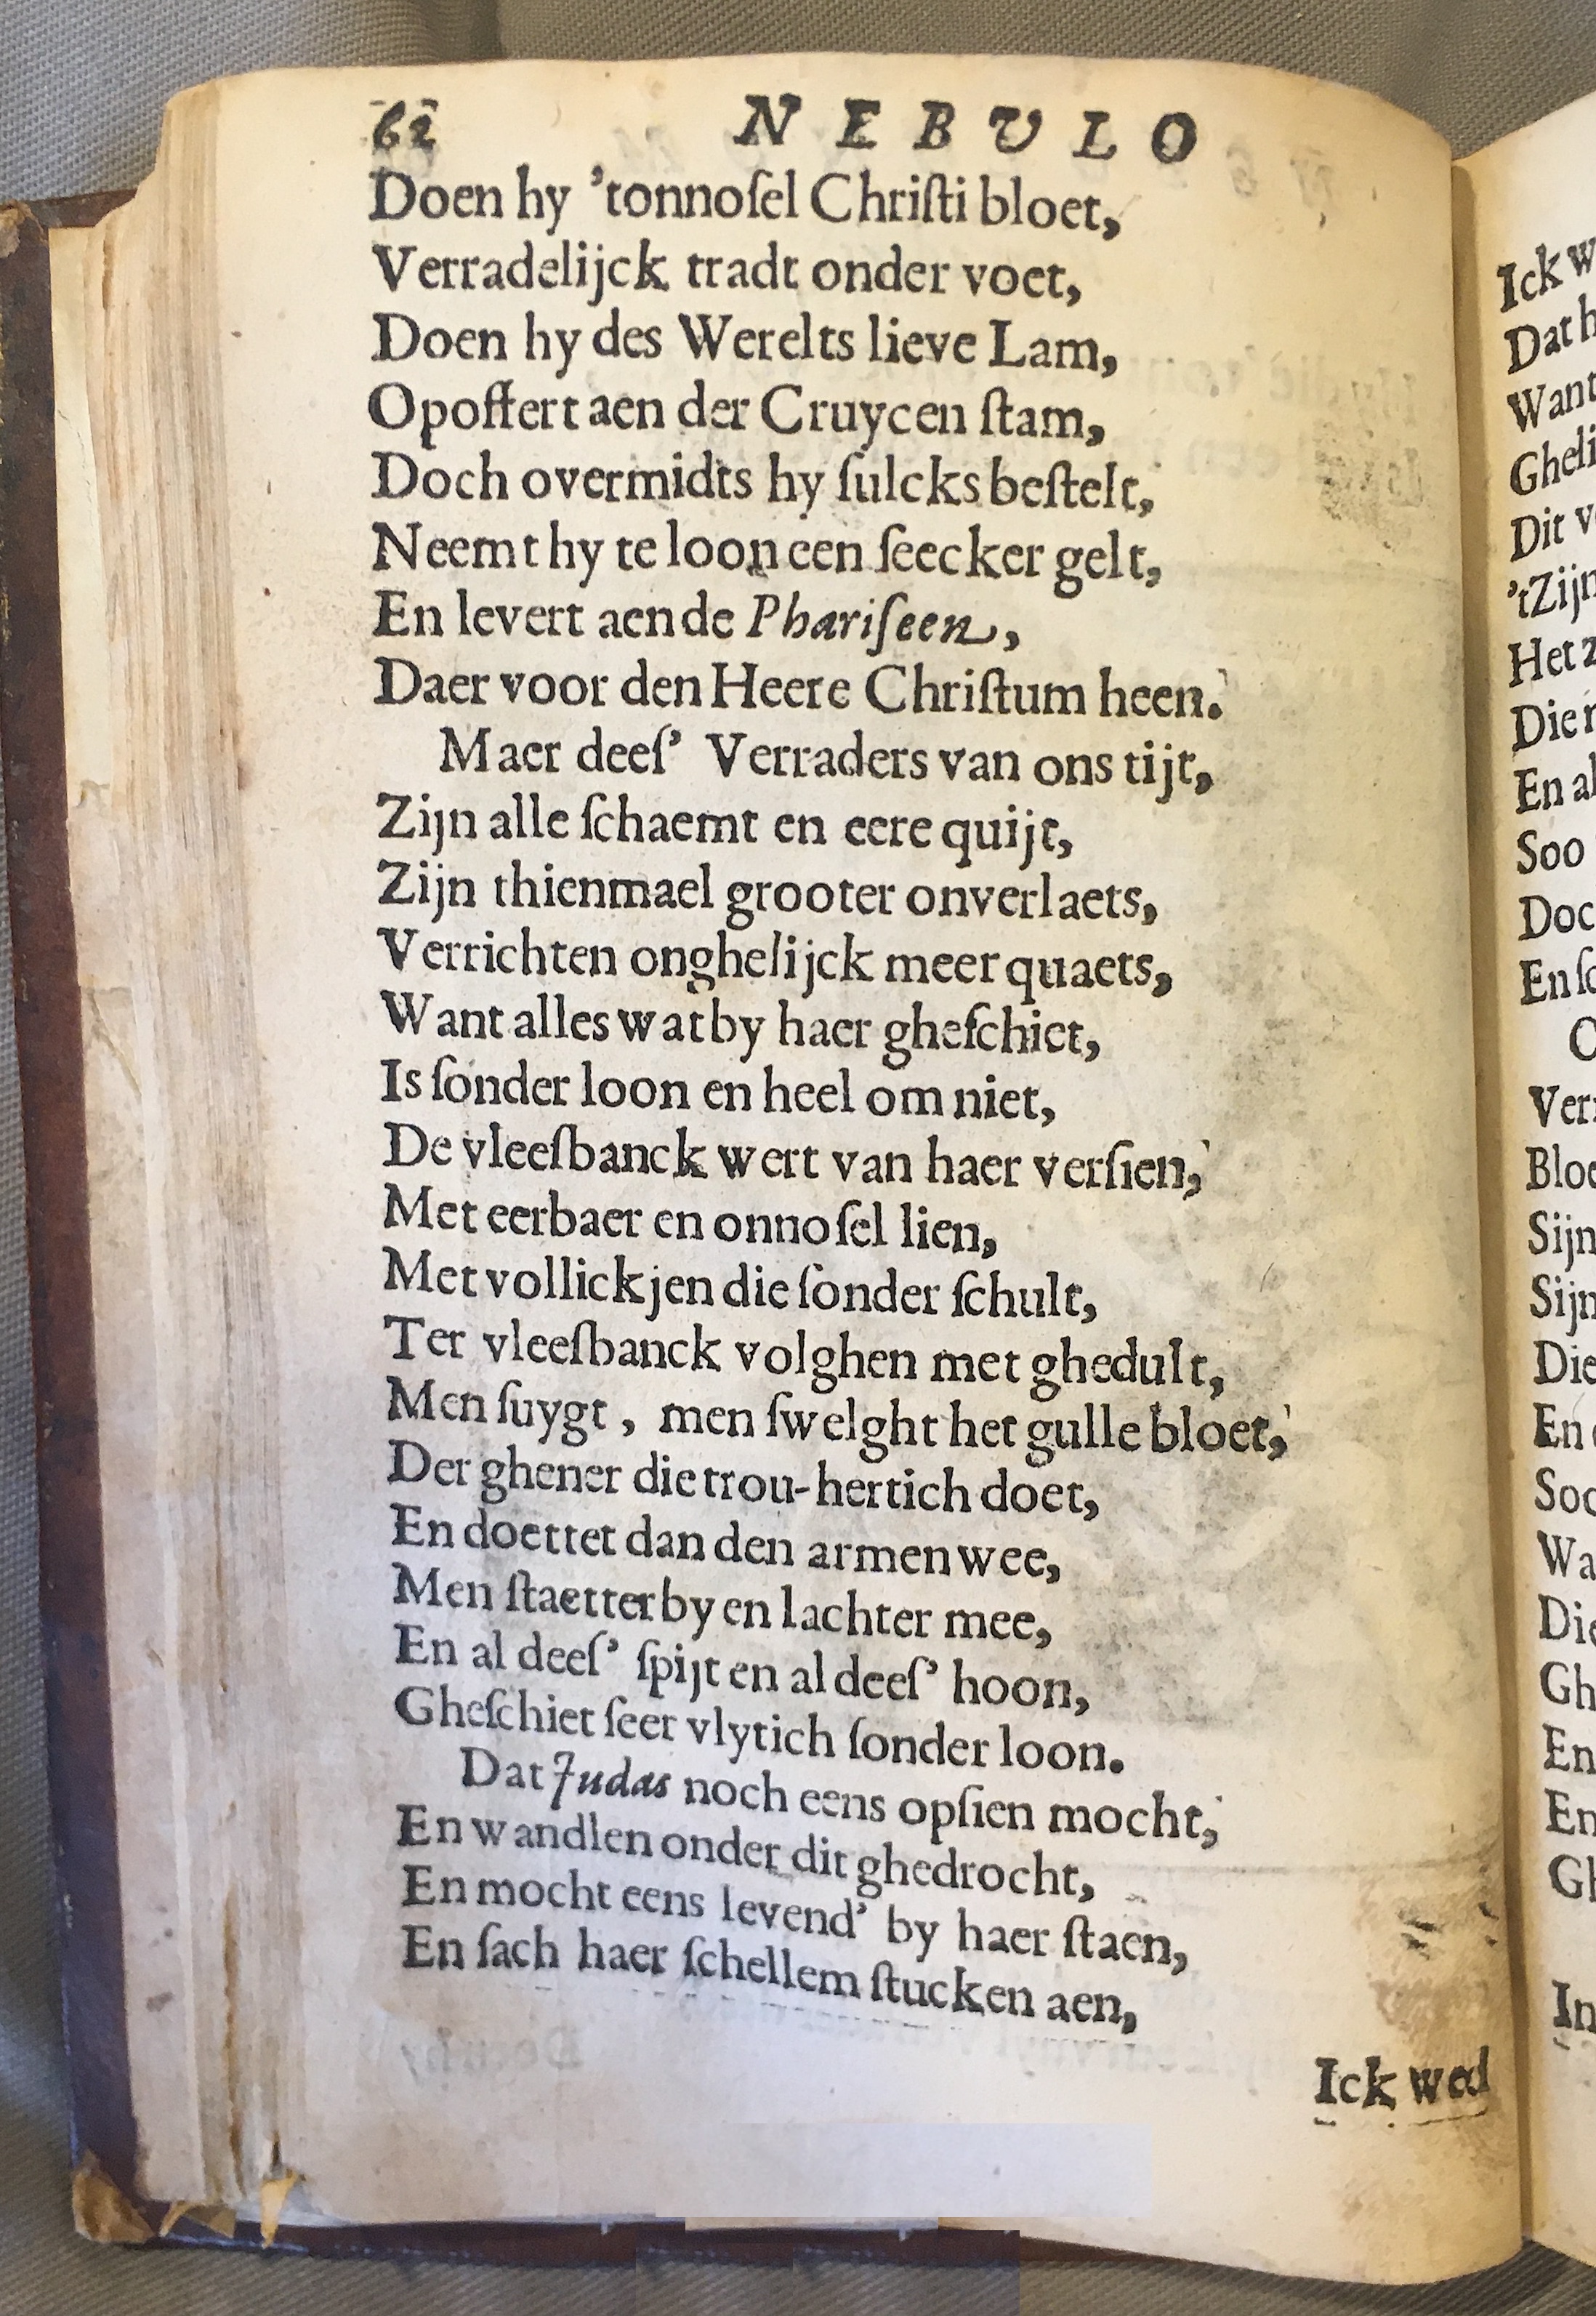 62 NEBVLO
Doen hy 'tonnoſel Chriſti bloet,
Verradelijck tradt onder voet,
Doen hy des Werelts lieve Lam,
Opoffert aen der Cruycen ſtam,
Doch overmidts hy ſulcks beſtelt,
Neemt hy te loon een ſeecker gelt,
En levert aende Phariſeen,
Daer voor den Heere Chriſtum heen.
Maer deeſ' Verraders van ons tijt,
Zijn alle ſchaemt en eere quijt,
Zijn thienmael grooter onverlaets,
Verrichten onghelijck meer quaets,
Want alles wat by haer gheſchiet,
Is ſonder loon en heel om niet,
De vleeſbanck wert van haer verſien,
Met eerbaer en onnoſel lien,
Met vollickjen die ſonder ſchult,
Ter vleeſbanck volghen met ghedult,
Men ſuygt, men ſwelght het gulle bloet,
Der ghener die trou-hertich doet,
En doettet dan den armen wee,
Men ſtaetter by en lachter mee,
En al deeſ' ſpijt en al deeſ' hoon,
Gheſchiet ſeer vlytich ſonder loon.
Dat Judas noch eens opſien mocht,
En wandlen onder dit ghedrocht,
En mocht eens levend' by haer ſtaen,
En ſach haer ſchellem ſtucken aen,
Ick wed
Ick
Dat
Want
Dit
'tZijn
Het
Die
En
Soo
En
Sijn
Sijn
Die
En
En
En
In